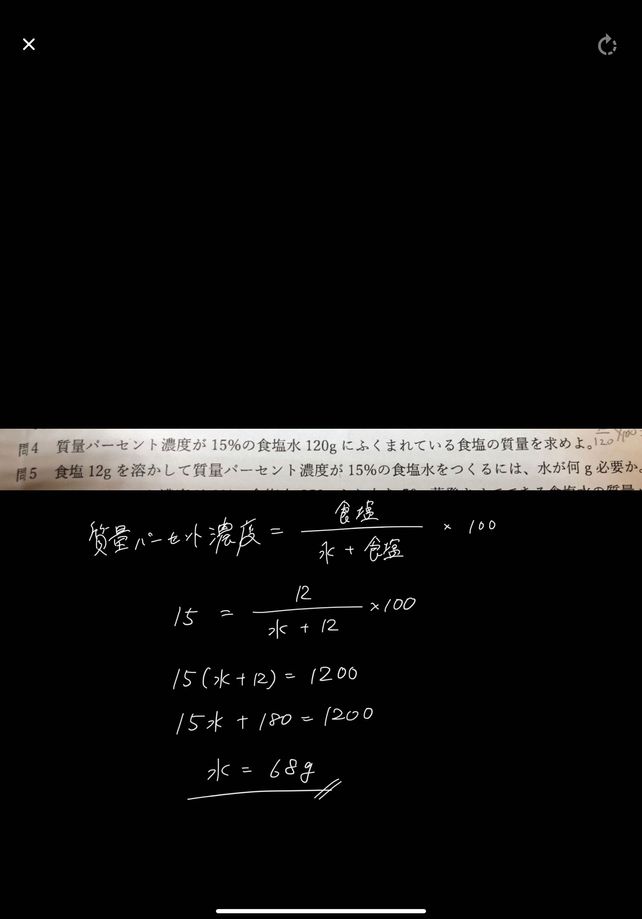 問4 質量パーセント濃度が15%の食塩水120gにふくまれている食塩の質量を求めよ。
120 ×100
問5 食塩12gを溶かして質量パーセント濃度が15%の食塩水をつくるには、水が何g必要か。
質量パーセント濃度 = 食塩 / 水 + 食塩 × 100
15 = 12 / 水 + 12 ×100
15(水+12) = 1200
15水 + 180 = 1200
水 = 68g